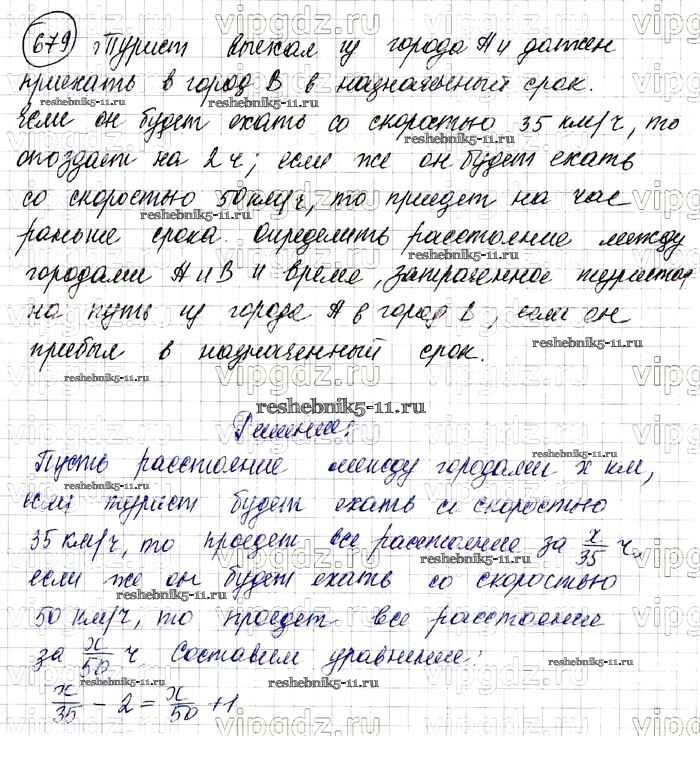 679 Турист выехал из города А и должен
приехать в город В в назначенный срок.
Если он будет ехать со скоростью 35 км/ч, то
опоздает на 2 ч; если же он будет ехать
со скоростью 50 км/ч, то приедет на час
раньше срока. Определить расстояние между
городами А и В и время, затраченное туристом
на путь из города А в город В, если он
прибыл в назначенный срок.
Решение:
Пусть расстояние между городами х км,
если турист будет ехать со скоростью
35 км/ч, то проедет все расстояние за x/35 ч,
если же он будет ехать со скоростью
50 км/ч, то проедет все расстояние
за x/50 ч Составим уравнение:
x/35 - 2 = x/50 + 1
vipgdz.ru
reshebnik5-11.ru